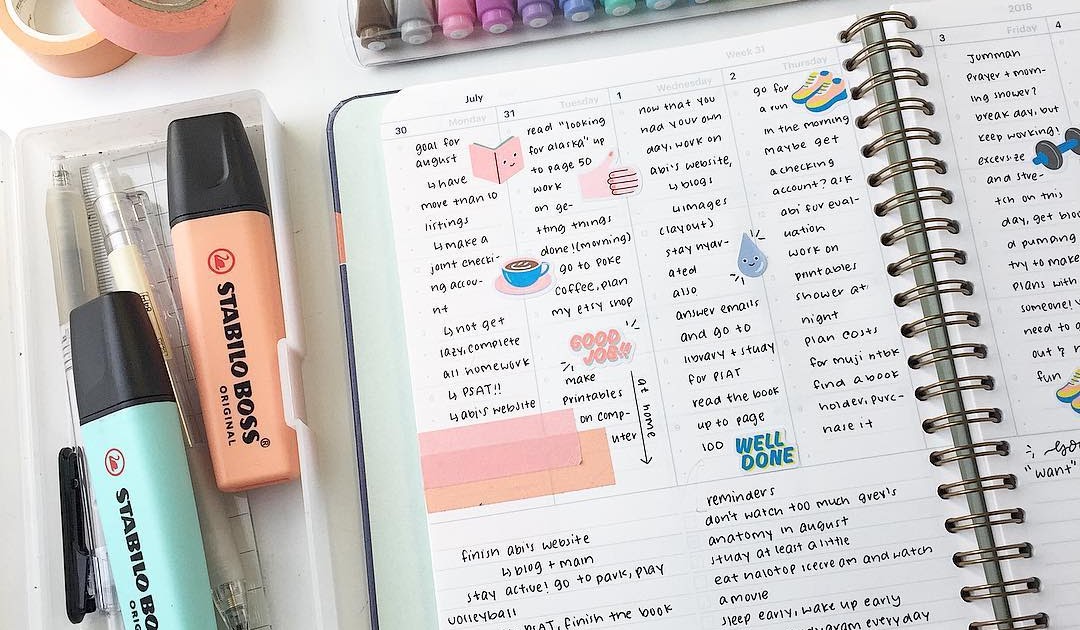 2018
Week 31
July
30 Monday
goal for
august
↳ have
more than 10
listings
↳ make a
joint checki-
ng accou-
nt
↳ not get
lazy, complete
all homework
↳ PSAT!!
↳ abi's website
31 Tuesday
read "looking
for alaska" up
to page 50
work
on ge-
tting things
done! (morning)
go to poke
coffee, plan
my etsy shop
GOOD
JOB!!
make
printables
on comp-
uter
at home
1 Wednesday
now that you
had your own
day, work on
abi's website,
↳ blogs
↳ images
(layout)
stay hydr-
ated
also
answer emails
and go to
library + study
for PSAT
read the book
up to page
100
WELL
DONE
2 Thursday
go for
a run
in the morning
maybe get
a checking
account? ask
abi for eval-
uation
work on
printables
shower at
night
plan costs
for muji ntbk
find a book
holder, purc-
hase it
3 Friday
Jummah
Prayer + morn-
ing shower?
break day, but
keep working!
excersize
and stre-
tch on this
day, get
d pumping
try to make
plans with
need to
fun
4
"want"
finish abi's website
↳ blog + main
stay active! go to park, play
volleyball
PSAT, finish the book
reminders
don't watch too much grey's
anatomy in august
study at least a little
eat halotop icecream and watch
a movie
sleep early, wake up early
every day
STABILO BOSS®
ORIGINAL
STABILO BO